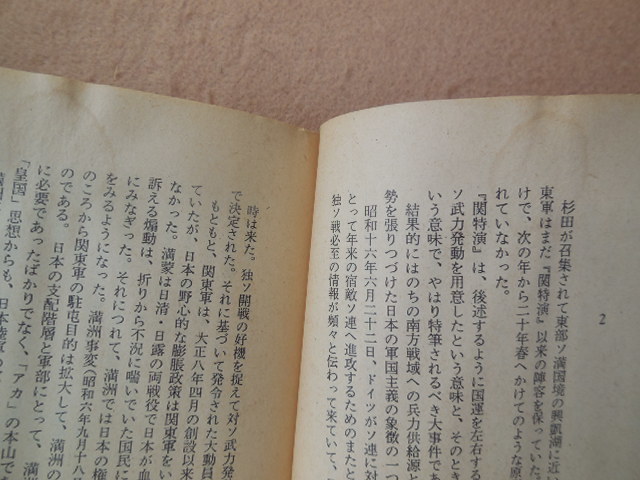 2
杉田が召集されて東部ソ満国境の興凱湖に近い
東軍はまだ『関特演』以来の陣容を保っていた。
けで、次の年から二十年春へかけてのような原
れていなかった。
『関特演』は、後述するように国運を左右する
ソ武力発動を用意したという意味と、そのとき
いう意味で、やはり特筆されるべき大事件であ
結果的にはのちの南方戦域への兵力供給源と
勢を張りつづけた日本の軍国主義の象徴の一つ
昭和十六年六月二十二日、ドイツがソ連に対
とって年来の宿敵ソ連へ進攻するためのまたと
独ソ戦必至の情報が頻々と伝わって来ていて、
時は来た。独ソ開戦の好機を捉えて対ソ武力発
で決定された。それに基づいて発令された大動員
もともと、関東軍は、大正八年四月の創設以来
ていたが、日本の野心的な膨脹政策は関東軍をい
なかった。満蒙は日清・日露の両戦役で日本が血
訴える煽動は、折りから不況に喘いでいた国民に
にみなぎった。それにつれて、満洲では日本の権
をみるようになった。満洲事変(昭和六年九月十八
のころから関東軍の駐屯目的は拡大して、満洲の
のである。日本の支配階層と軍部にとって、満洲
に必要であったばかりでなく、「アカ」の本山であ
「皇国」思想からも、日本陸軍